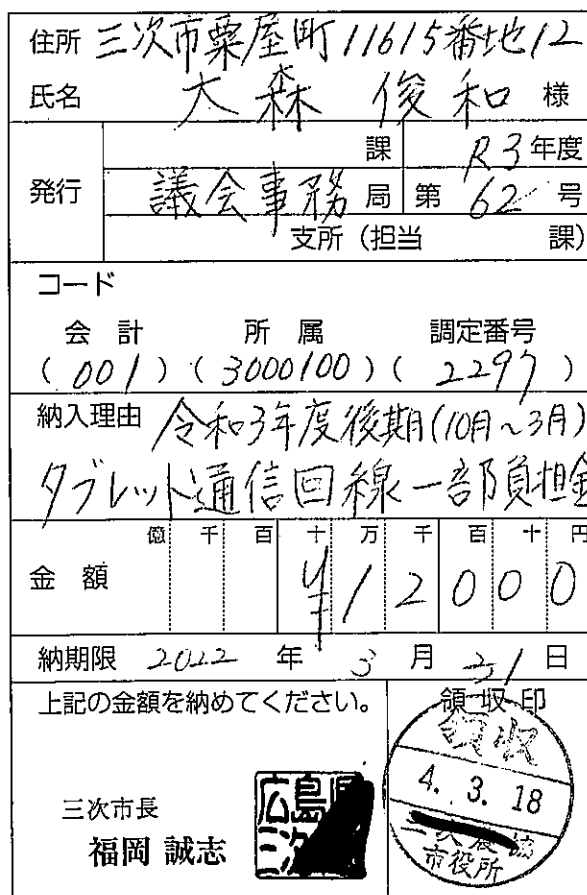 住所 三次市粟屋町11615番地12
氏名 大森 俊和 様
発行
課 R3年度
議会事務局 第 62 号
支所(担当 課)
コード
会計 所属 調定番号
(001)(3000100)(2297)
納入理由 令和3年度後期(10月~3月)
タブレット通信回線一部負担金
億 千 百 十 万 千 百 十 円
金額 ¥12000
納期限 2022 年 3 月 31 日
上記の金額を納めてください。
領収印
領収
4. 3. 18
市役所
三次市長
福岡 誠志
広島
三次